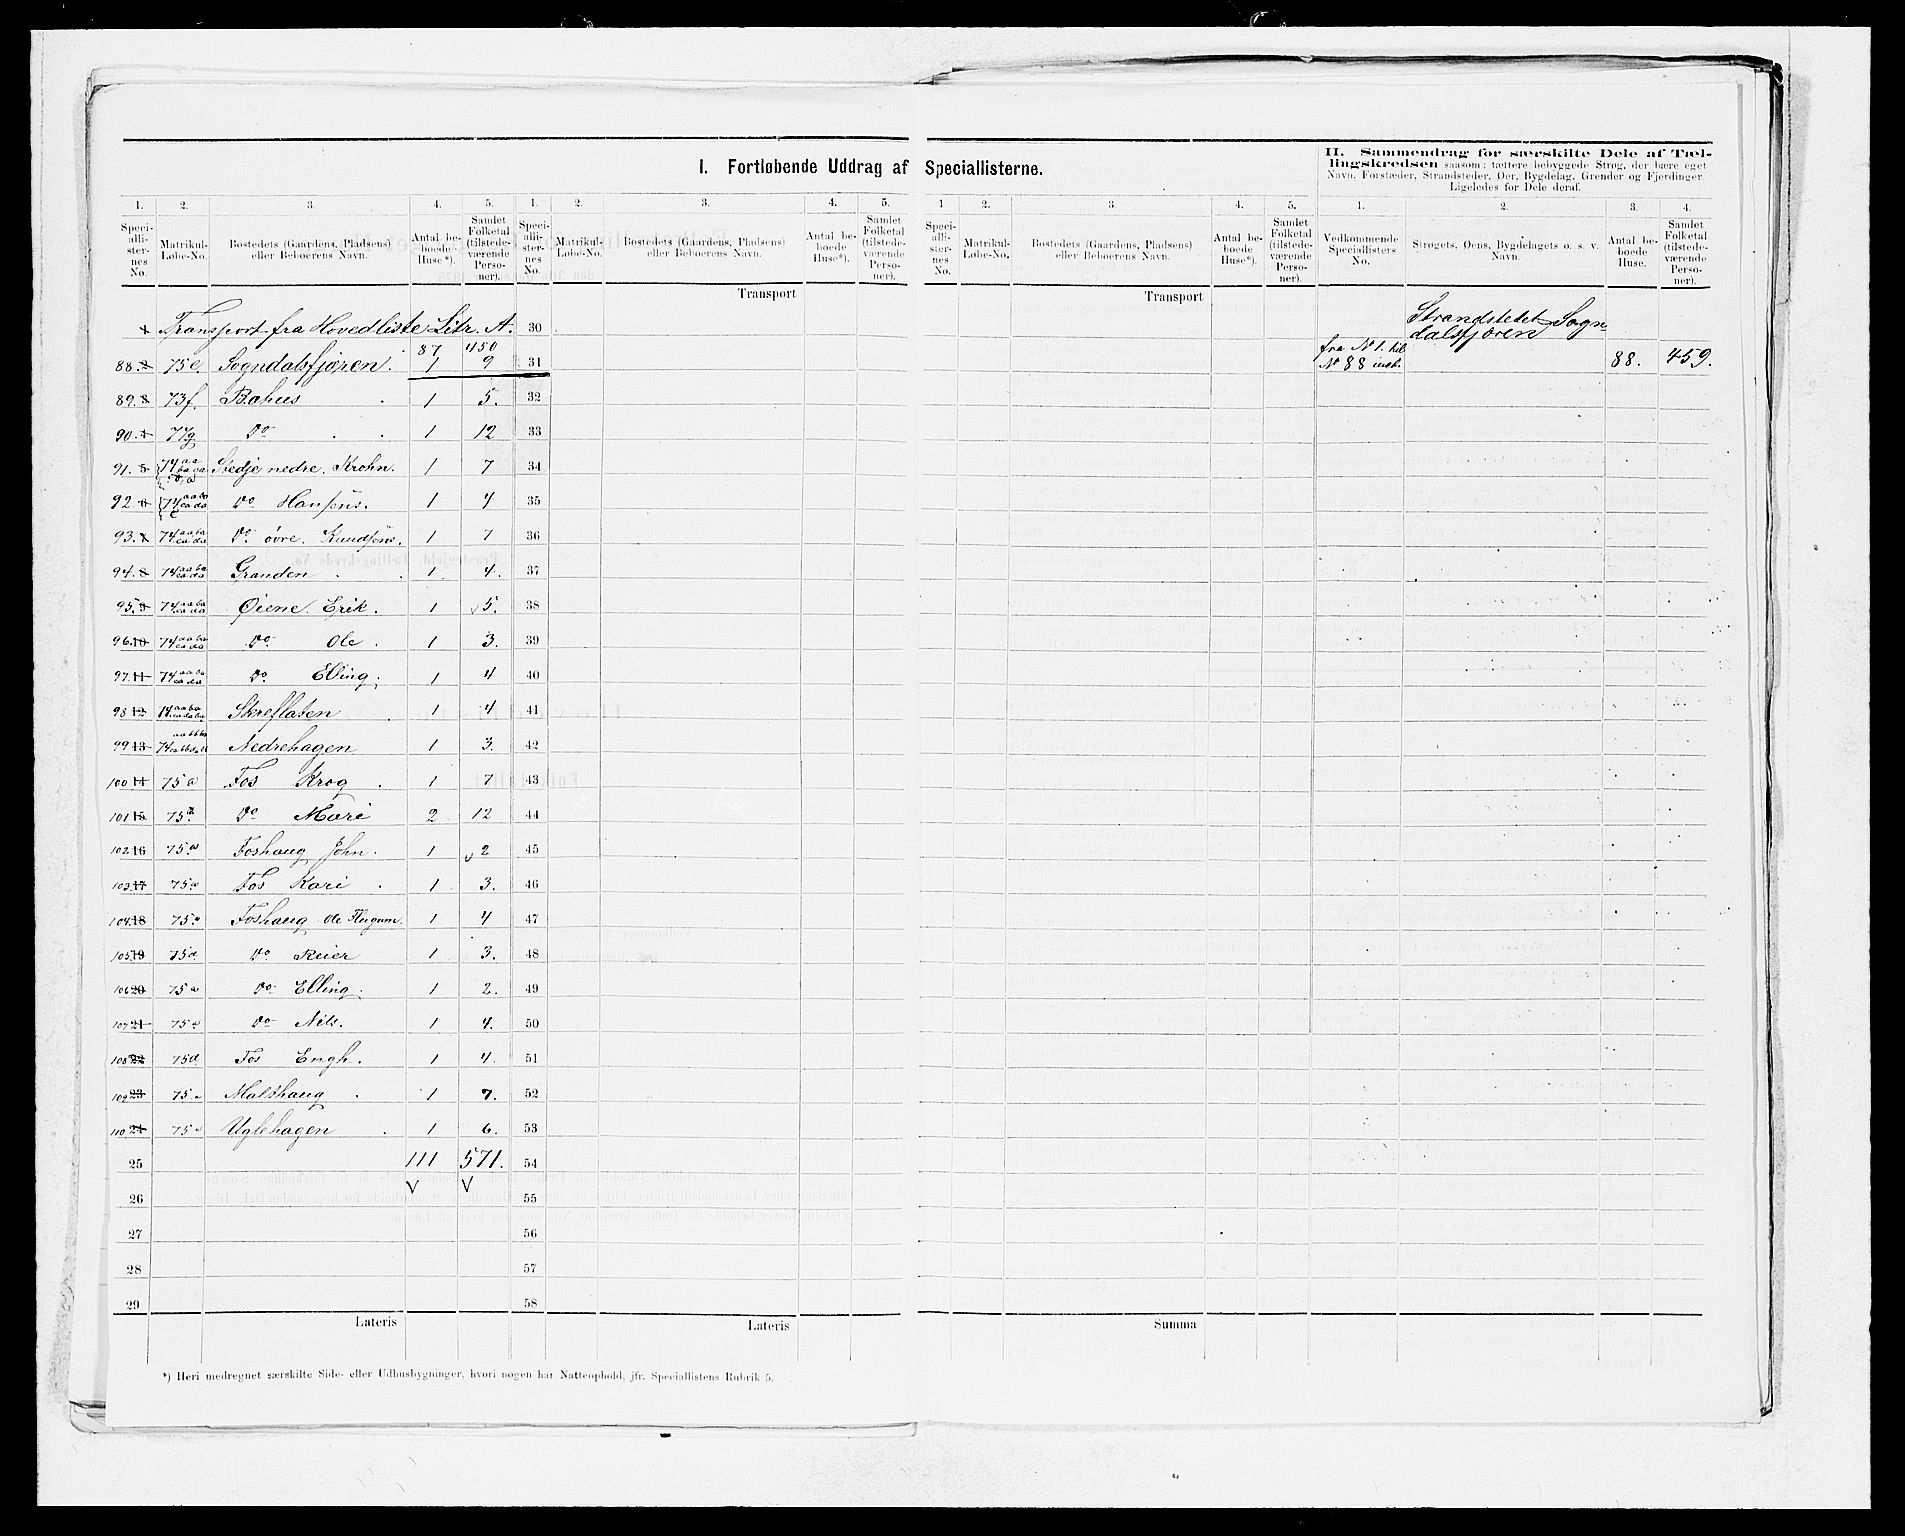 I. Fortløbende Uddrag af Speciallisterne.
II. Sammendrag for særskilte Dele af Tæl-
lingskredsen saasom: tættere bebyggede Strøg, der bære eget
Navn, Forstæder, Strandsteder, Øer, Bygdelag, Grender og Fjerdinger.
Ligeledes for Dele deraf.
1. 2. 3. 4. 5. 1. 2. 3. 4. 5. 1 2. 3. 4. 5. 1. 2. 3. 4.
Speciallisternes No. Matrikul-Løbe-No. Bostedets (Gaardens, Pladsens) eller Beboerens Navn. Antal beboede Huse*). Samlet Folketal (tilstedeværende Personer).
Speciallisternes No. Matrikul-Løbe-No. Bostedets (Gaardens, Pladsens) eller Beboerens Navn. Antal beboede Huse*). Samlet Folketal (tilstedeværende Personer).
Speciallisternes No. Matrikul-Løbe-No. Bostedets (Gaardens, Pladsens) eller Beboerens Navn. Antal beboede Huse*). Samlet Folketal (tilstedeværende Personer).
Vedkommende Speciallisters No. Strøgets, Øens, Bygdelagets o. s. v. Navn. Antal beboede Huse. Samlet Folketal (tilstedeværende Personer).
Transport Transport
1 Transport fra Hovedliste Litr. A. 87 450 30
Strandstedet Sogn-
dalsfjøren
88. 2 75e. Sogndalsfjøren. 1 9 31 fra No 1. til No 88 incl. 88. 459.
89. 3 73f. Bahus . 1 5. 32
90. 4 77g Do . . 1 12 33
91. 5 74 aa ba ca Stedje nedre. Krohn. 1 7 34
92 6 74 aa ba ca da Do Hansens. 1 4 35
93. 7 74 aa ba ca da Do øvre. Knudsens. 1 7 36
94. 8 74 aa ba ca da Granden . . 1. 4. 37
95. 9 74 aa ba ca da Øiene. Erik. 1 5. 38
96. 10 74 aa ba ca da Do Ole . 1 3. 39
97. 11 74 aa ba ca da Do Elling. 1 4 40
98 12 74 aa ba Skreflaten . 1 4 41
99 13 74 Nedrehagen 1 3. 42
100 14 75a Fos Krog . 1 7 43
101 15 75a Do Mari 2 12 44
102. 16 75a Foshaug John. 1 2 45
103. 17 75a Fos Kari . 1 3. 46
104. 18 75a Foshaug Ole Flugum. 1 4 47
105. 19 75a Do Reier 1 3. 48
106 20 75a Do Elling. 1 2. 49
107 21 75a Do Nils. 1 4. 50
108 22 75d Fos Engh. 1 4. 51
109 23 75a Malshaug . 1 7. 52
110. 24 75a Uglehagen . 1 6. 53
25 111 571. 54
26 55
27 56
28 57
29 58
Lateris Lateris Summa
*) Heri medregnet særskilte Side- eller Udhusbygninger, hvori nogen har Natteophold, jfr. Speciallistens Rubrik 5.